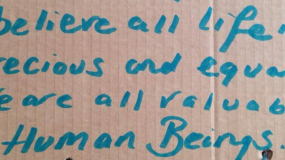 believe all life
recious and equa
e are all valuab
Human Beings.